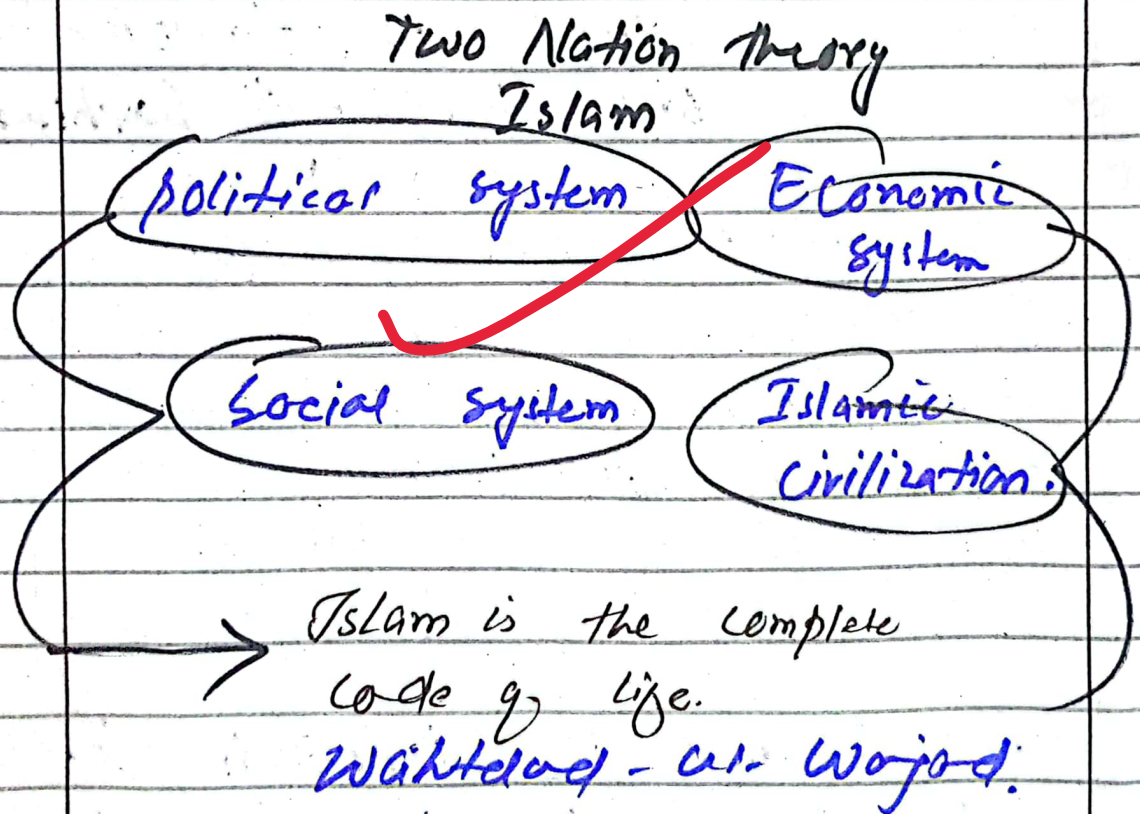 Two Nation theory
Islam
political system
Economic
system
Social system
Islamic
civilization.
Islam is the complete
code of life.
Wahtdad-ul-Wojod.